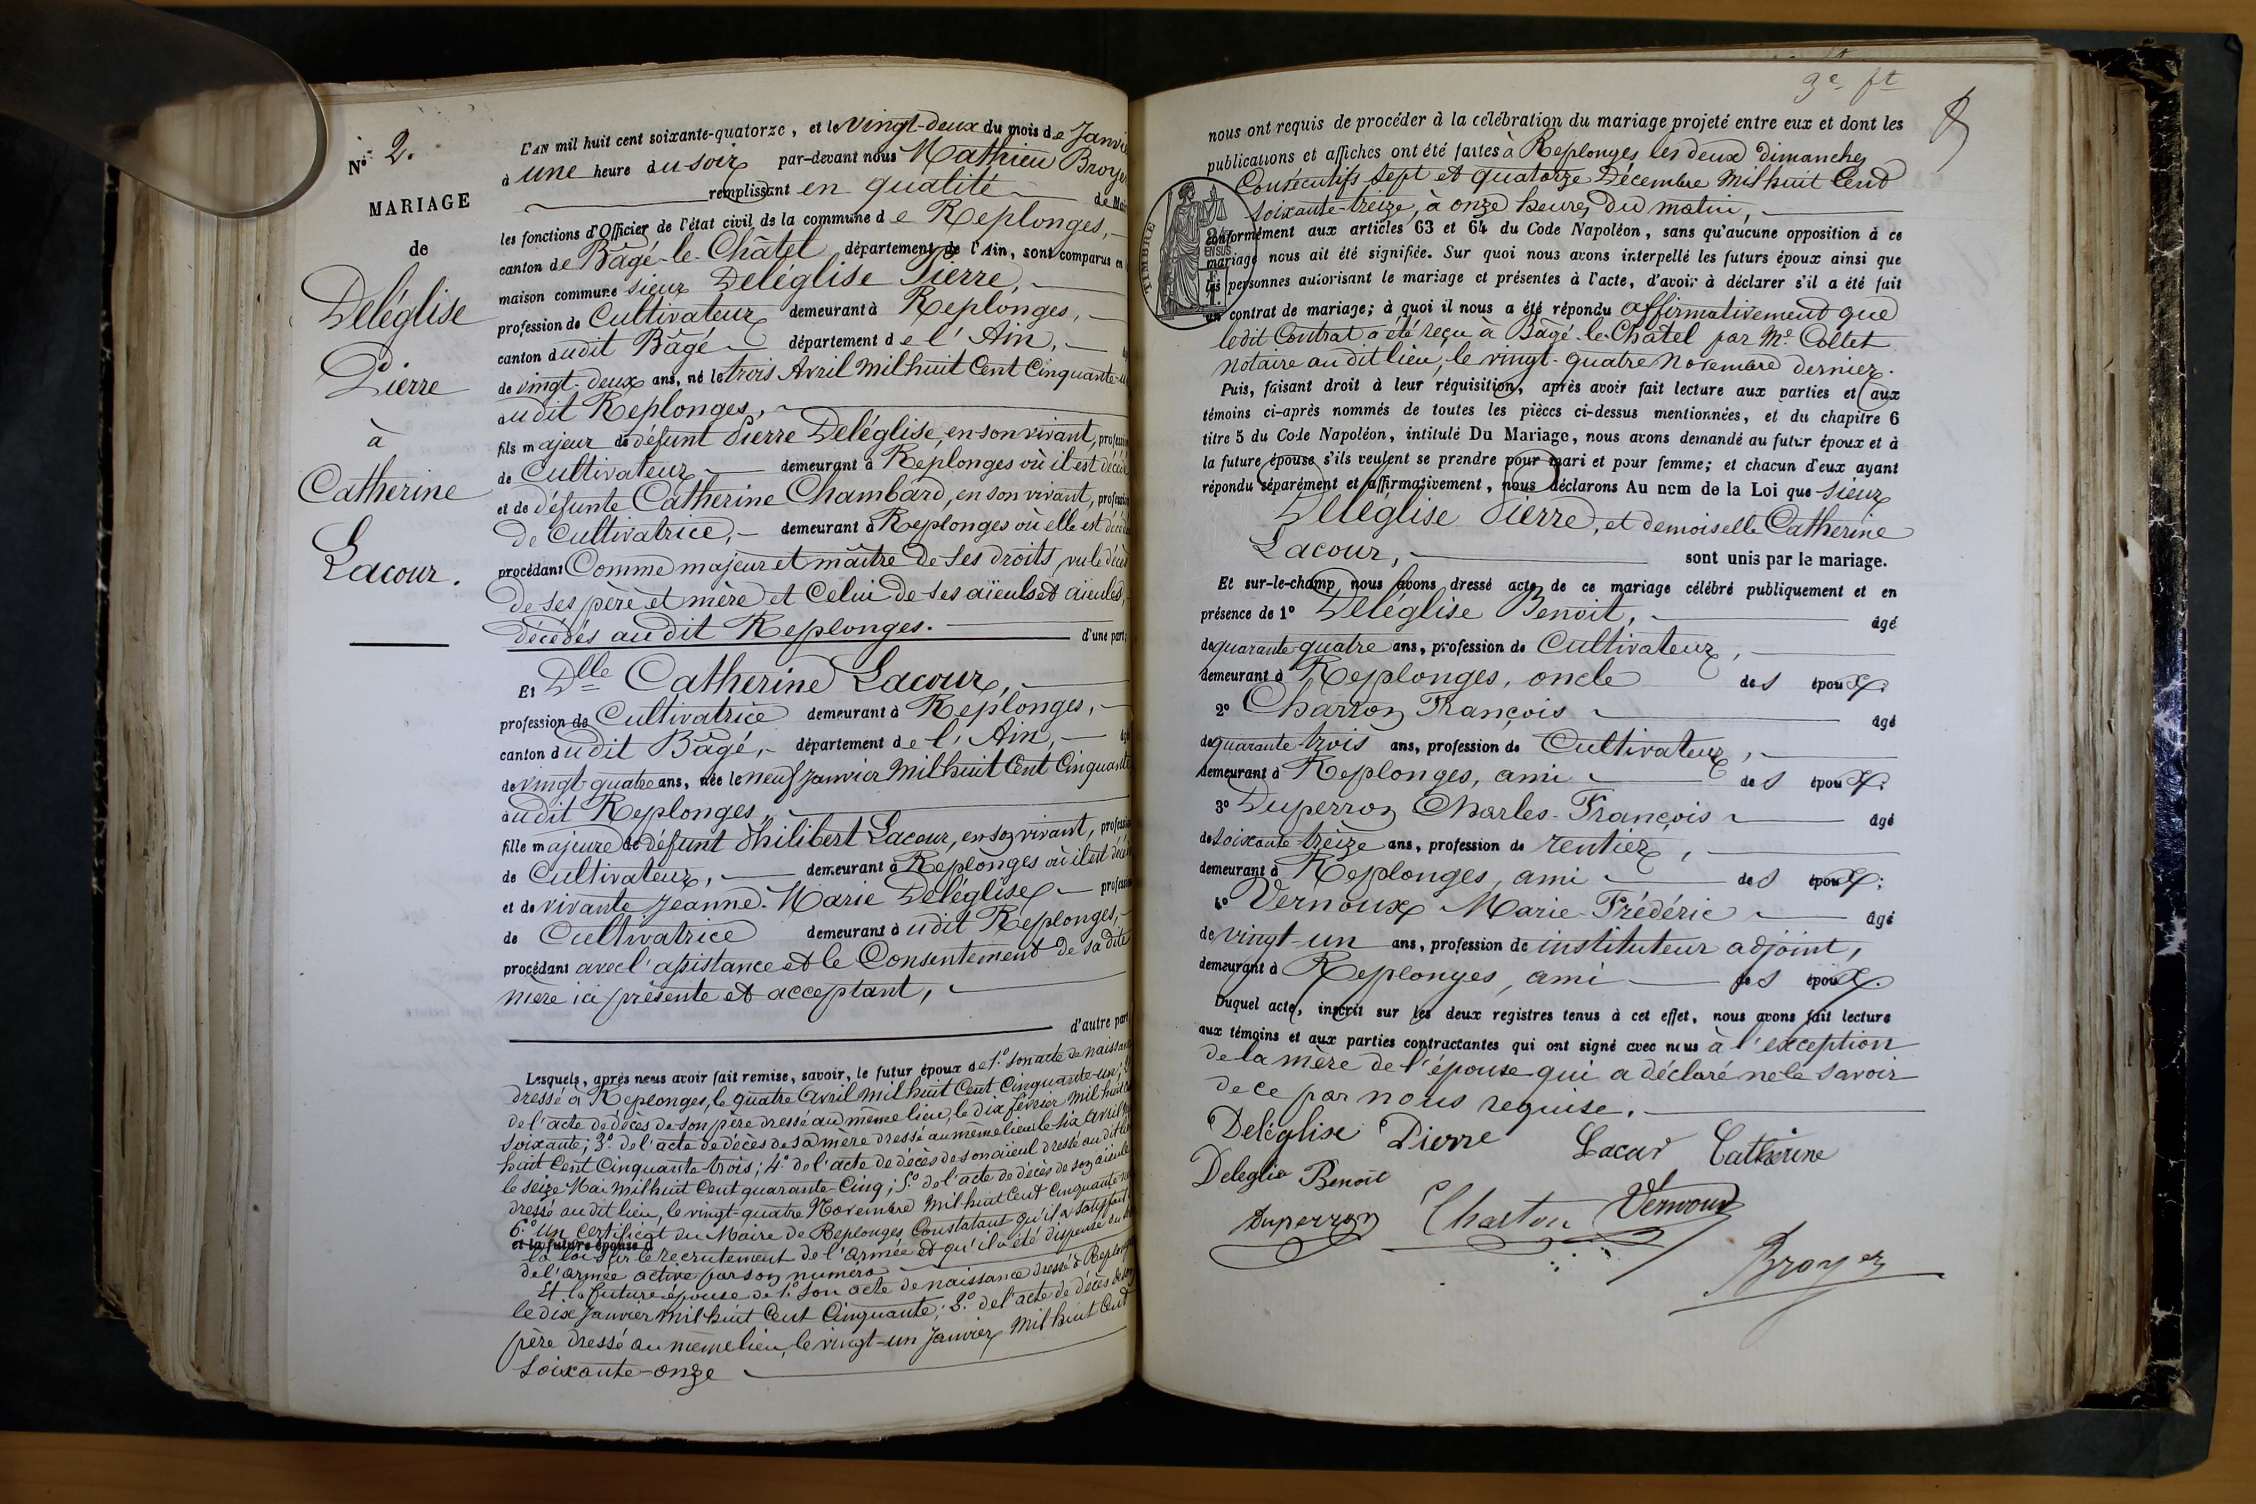 N° 2.
MARIAGE
de
Deléglise
Pierre
à
Catherine
Lacour.
L'AN mil huit cent soixante-quatorze, et le vingt-deux du mois de Janvi
à une heure du soir par-devant nous Mathieu Broye
remplissant en qualité de Mai
les fonctions d'Officier de l'état civil de la commune de Replonges,
canton de Bâgé-le-Châtel département de l'Ain, sont comparus en
maison commune sieur Deléglise Pierre,
profession de Cultivateur demeurant à Replonges,
canton dudit Bâgé département de l'Ain,
de vingt-deux ans, né le trois Avril mil huit Cent Cinquante-u
audit Replonges,
fils majeur de défunt Pierre Deléglise, en son vivant, profession
de Cultivateur demeurant à Replonges où il est décédé
et de défunte Catherine Chambard, en son vivant, profession
de Cultivatrice, demeurant à Replonges où elle est décé
procédant Comme majeur et maître de ses droits, vu le décè
de ses père et mère et Celui de ses aïeuls et aïeules,
décédés audit Replonges. d'une part;
Et Dlle Catherine Lacour,
profession de Cultivatrice demeurant à Replonges,
canton dudit Bâgé, département de l'Ain,
de vingt quatre ans, née le neuf janvier Mil huit Cent Cinquante
audit Replonges,
fille majeure de défunt Philibert Lacour, en son vivant, profession
de Cultivateur, demeurant à Replonges où il est décé
et de vivante Jeanne-Marie Deléglise profession
de Cultivatrice demeurant audit Replonges,
procédant avec l'assistance et le Consentement de sa dite
mère ici présente et acceptant,
d'autre part
Lesquels, après nous avoir fait remise, savoir, le futur époux de 1° son acte de naissan
dressé à Replonges, le quatre avril mil huit Cent Cinquante-un;
de l'acte de décès de son père dressé au même lieu, le dix février mil huit
soixante; 3° de l'acte de décès de sa mère dressé au même lieu le six avril
huit Cent Cinquante trois; 4° de l'acte de décès de son aïeul dressé audit lieu
le seize Mai mil huit Cent quarante-Cinq; 5° de l'acte de décès de son aïeule
dressé audit lieu, le vingt-quatre Novembre mil huit Cent Cinquante
6° Un Certificat du Maire de Replonges Constatant qu'il a satisfait
et la future épouse d
la loi sur le recrutement de l'armée et qu'il a été dispensé du
de l'armée active par son numéro
Et la future épouse de 1° son acte de naissance dressé à Replonges
le dix Janvier mil huit Cent Cinquante; 2° de l'acte de décès de son
père dressé au même lieu, le vingt-un Janvier mil huit Cent
soixante-onze
3e ft
nous ont requis de procéder à la célébration du mariage projeté entre eux et dont les
publications et affiches ont été faites à Replonges les deux dimanches
Consécutifs sept et quatorze Décembre mil huit Cent
soixante-treize, à onze heures du matin,
conformément aux articles 63 et 64 du Code Napoléon, sans qu'aucune opposition à ce
mariage nous ait été signifiée. Sur quoi nous avons interpellé les futurs époux ainsi que
les personnes autorisant le mariage et présentes à l'acte, d'avoir à déclarer s'il a été fait
un contrat de mariage; à quoi il nous a été répondu affirmativement que
ledit Contrat a été reçu à Bâgé-le-Châtel par Me Collet
notaire audit lieu, le vingt-quatre Novembre dernier.
Puis, faisant droit à leur réquisition, après avoir fait lecture aux parties et aux
témoins ci-après nommés de toutes les pièces ci-dessus mentionnées, et du chapitre 6
titre 5 du Code Napoléon, intitulé Du Mariage, nous avons demandé au futur époux et à
la future épouse s'ils veulent se prendre pour mari et pour femme; et chacun d'eux ayant
répondu séparément et affirmativement, nous déclarons Au nom de la Loi que sieur
Deléglise Pierre, et demoiselle Catherine
Lacour, sont unis par le mariage.
Et sur-le-champ nous avons dressé acte de ce mariage célébré publiquement et en
présence de 1° Deléglise Benoit, âgé
de quarante quatre ans, profession de Cultivateur,
demeurant à Replonges, oncle des époux;
2° Charton François âgé
de quarante trois ans, profession de Cultivateur,
demeurant à Replonges, ami des époux;
3° Duperron Charles-François âgé
de soixante treize ans, profession de rentier,
demeurant à Replonges, ami des époux;
4° Vernoux Marie-Frédéric âgé
de vingt-un ans, profession de instituteur adjoint,
demeurant à Replonges, ami des époux.
Duquel acte, inscrit sur les deux registres tenus à cet effet, nous avons fait lecture
aux témoins et aux parties contractantes qui ont signé avec nous à l'exception
de la mère de l'épouse qui a déclaré ne le savoir
de ce par nous requise.
Deléglise Pierre Lacour Catherine
Deleglise Benoit
Duperron Charton Vernoux
Broyer
TIMBRE
EN SUS